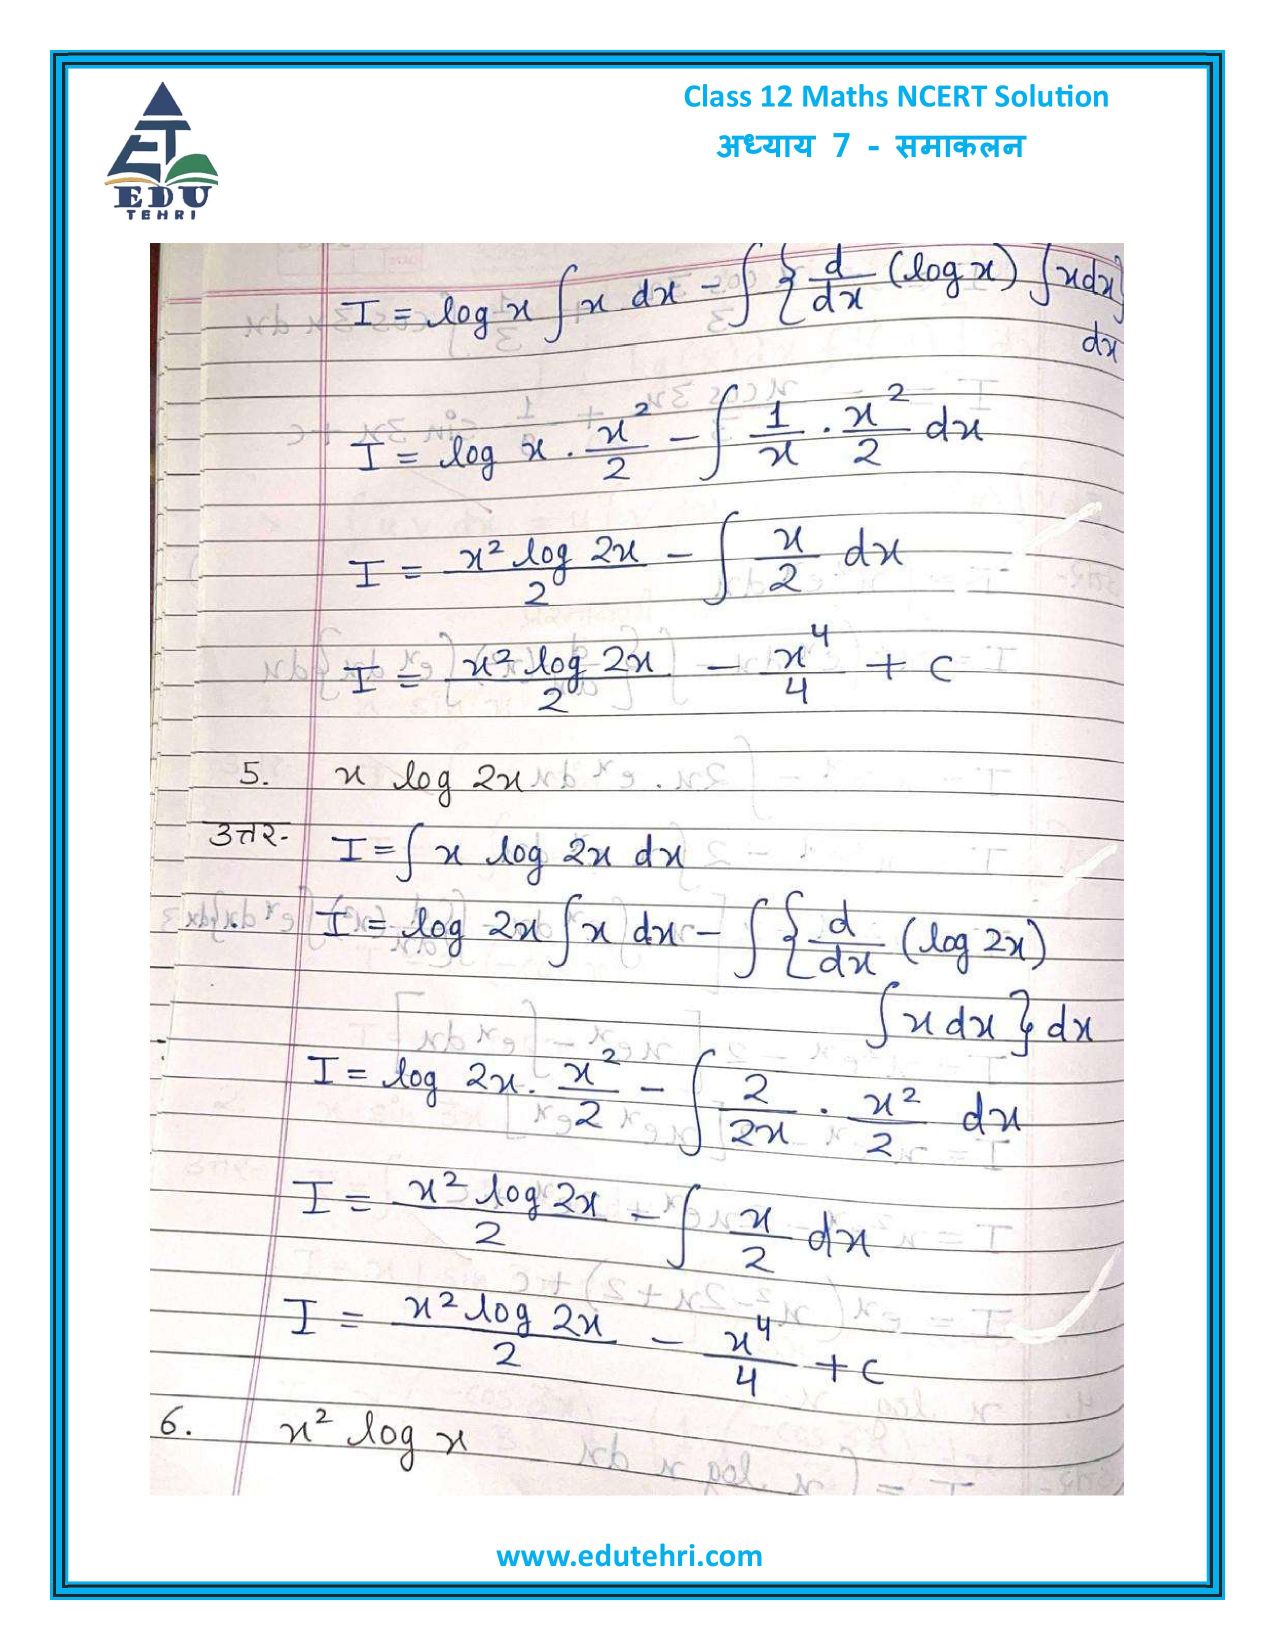 Class 12 Maths NCERT Solution
अध्याय 7 - समाकलन
EDU
TEHRI
I = log x ∫ x dx - ∫ { d/dx (log x) ∫ x dx}
dx
I = log x . x²/2 - ∫ 1/x . x²/2 dx
I = x² log 2x / 2 - ∫ x/2 dx
I = x² log 2x / 2 - x⁴/4 + c
5. x log 2x
उत्तर- I = ∫ x log 2x dx
I = log 2x ∫ x dx - ∫ { d/dx (log 2x)
∫ x dx } dx
I = log 2x . x²/2 - ∫ 2/2x . x²/2 dx
I = x² log 2x / 2 - ∫ x/2 dx
I = x² log 2x / 2 - x⁴/4 + c
6. x² log x
www.edutehri.com